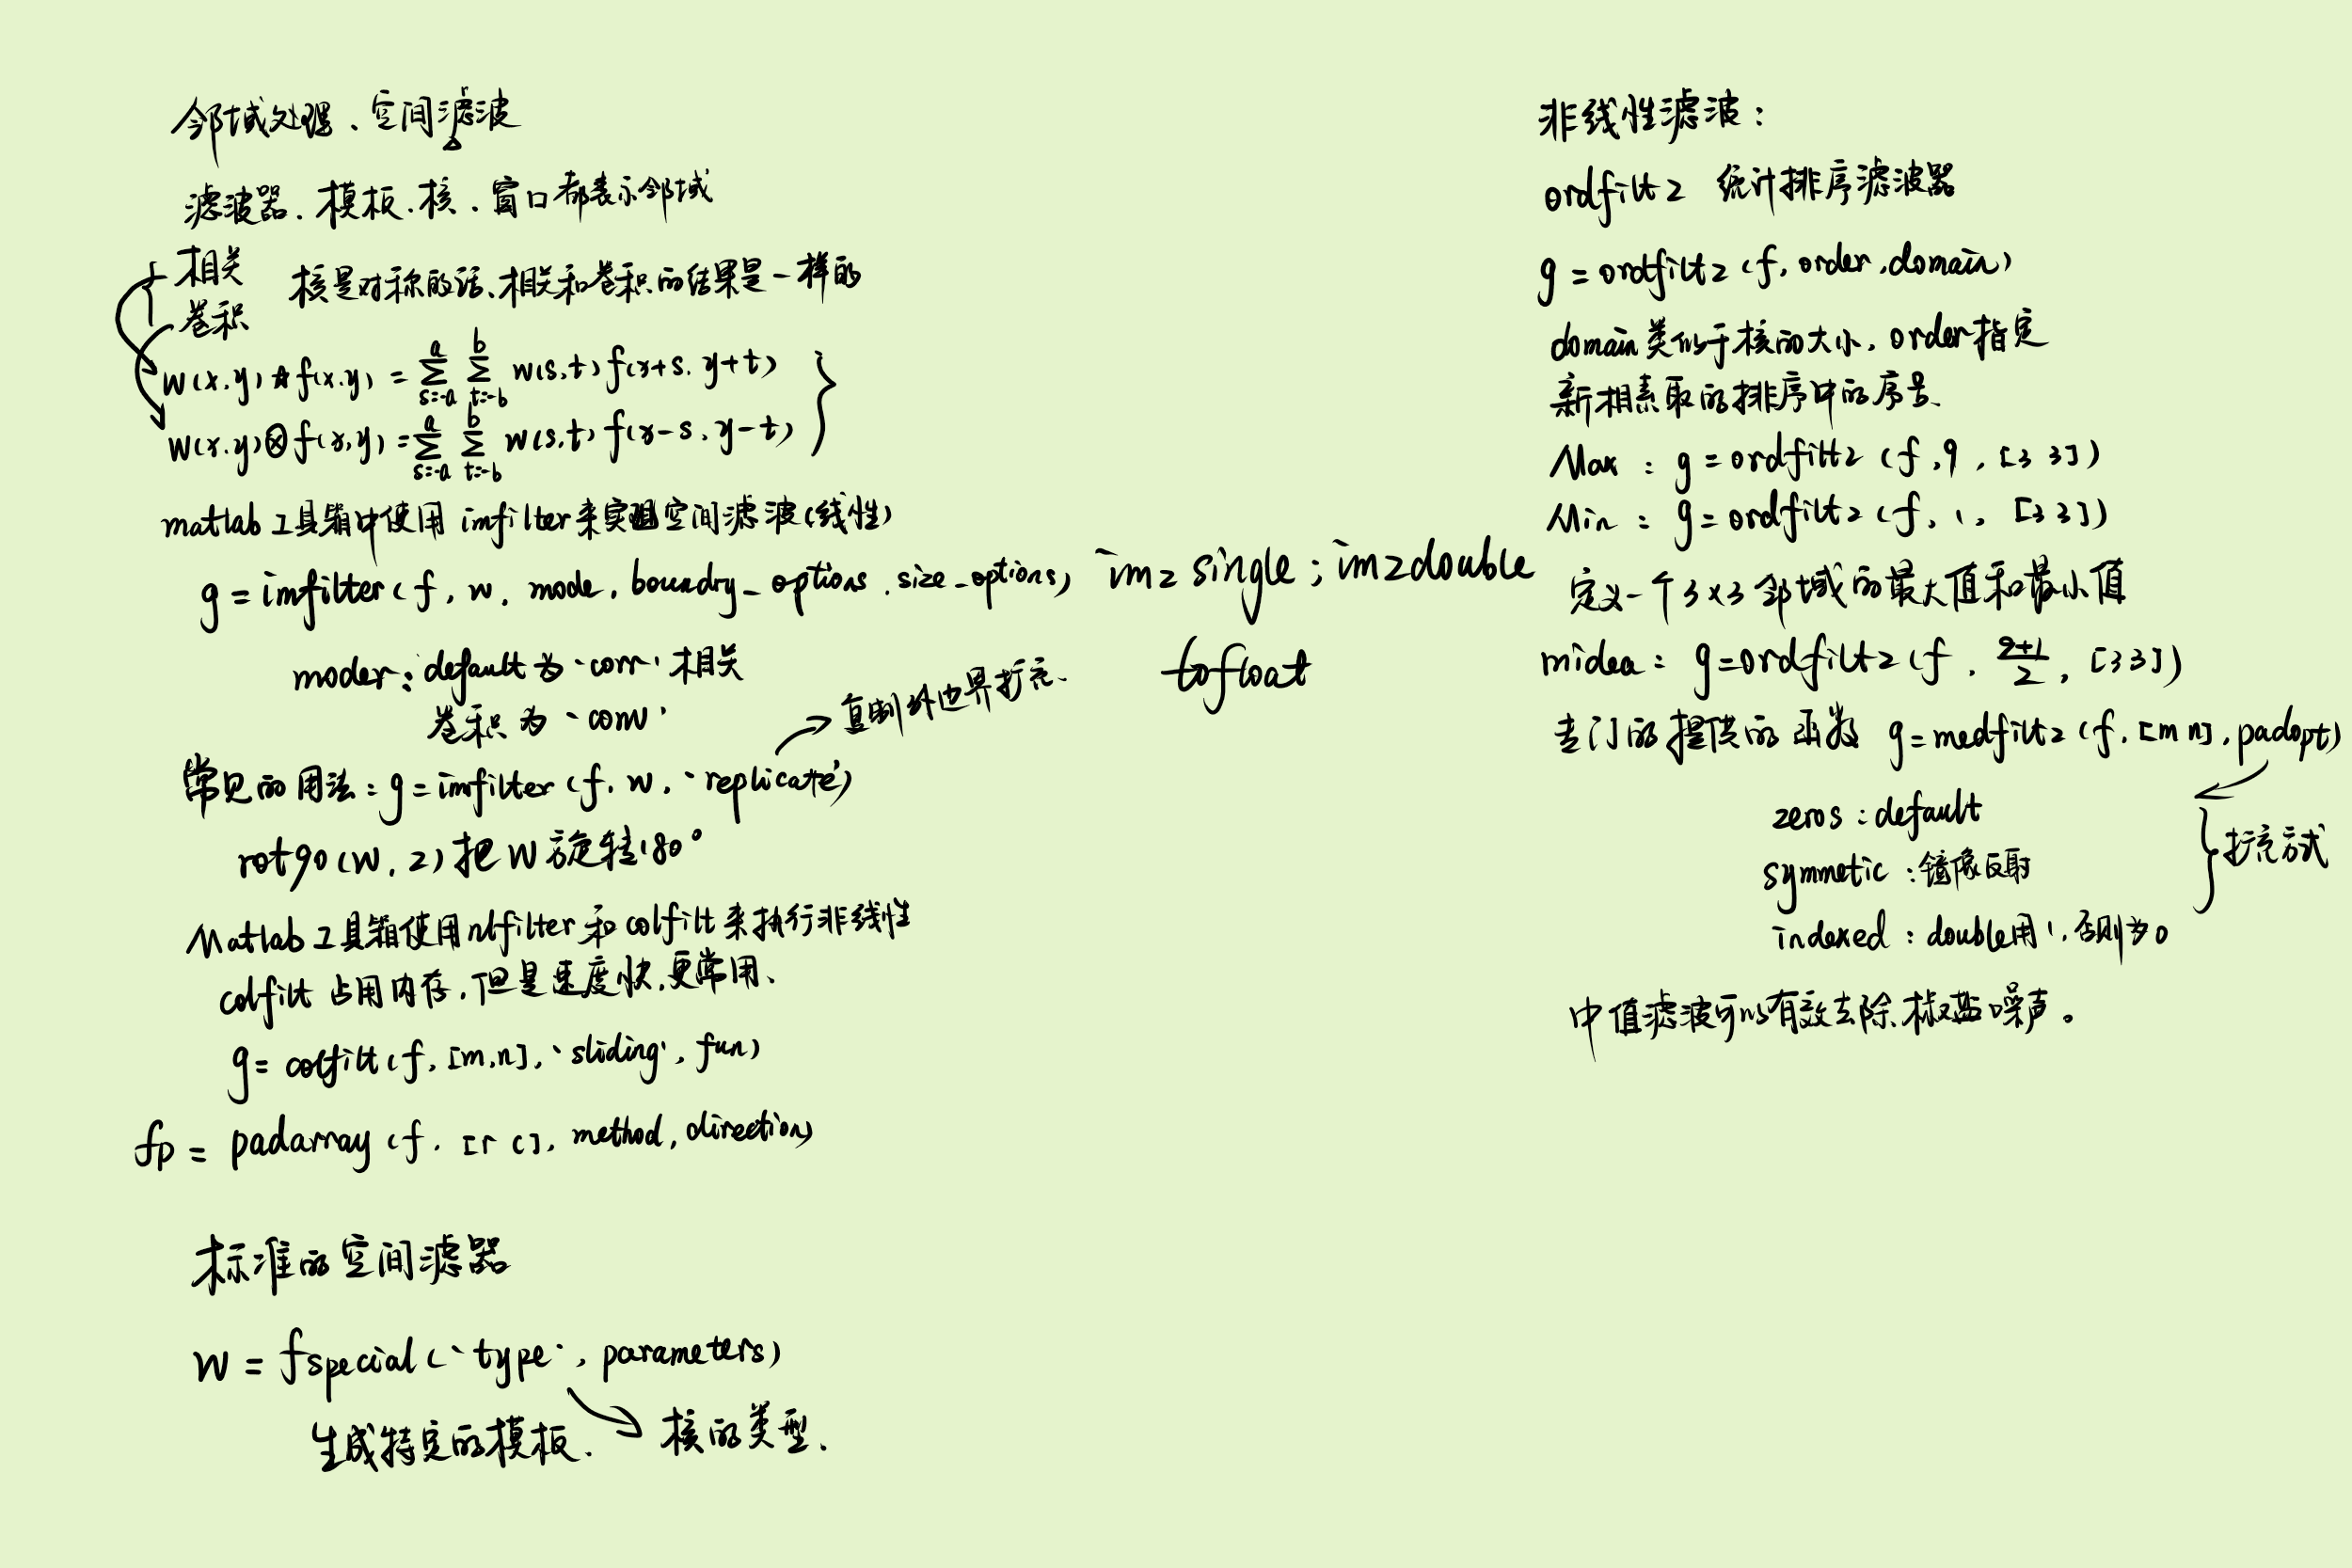 邻域处理、空间滤波
滤波器、模板、核、窗口都表示邻域
相关
卷积
核是对称的话、相关和卷积的结果是一样的
w(x,y)☆f(x,y) = Σ_{s=-a}^{a} Σ_{t=-b}^{b} w(s,t) f(x+s, y+t)
w(x,y)⊗f(x,y) = Σ_{s=-a}^{a} Σ_{t=-b}^{b} w(s,t) f(x-s, y-t)
matlab工具箱中使用 imfilter来实现空间滤波(线性)
g = imfilter(f, w, mode, boundry_options, size_options)
im2single ; im2double
tofloat
moder: default为'corr' 相关
卷积为'conv'
常见的用法: g = imfilter(f, w, 'replicate')
复制外边界扩充、
rot90(w, 2)把w旋转180°
Matlab工具箱使用nlfilter和colfilt来执行非线性
colfilt 占用内存,但是速度快,更常用、
g = colfilt(f, [m,n], 'sliding', fun)
fp = padarray(f, [r c], method, direction)
标准的空间滤器
w = fspecial('type', parameters)
生成特定的模板、
核的类型、
非线性滤波:
ordfilt2 统计排序滤波器
g = ordfilt2(f, order, domain)
domain类似于核的大小, order指定
新相素取的排序中的序号、
Max : g = ordfilt2(f, 9, [3 3])
Min : g = ordfilt2(f, 1, [3 3])
定义一个3×3邻域的最大值和最小值
midea: g=ordfilt2(f, (9+1)/2, [3 3])
专门的提供的函数 g=medfilt2(f, [m n], padopt)
zeros : default
symmetic : 镜像反射
indexed : double用1,否则为0
扩充方式
中值滤波可以有效去除椒盐噪声。